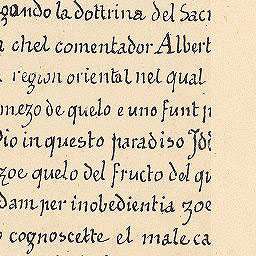 gando la dottrina del Sacr
a chel comentador Albert
region oriental nel qual
mezo de quelo e uno funt p
Dio in questo paradiso Idi
zoe quelo del fructo del qu
dam per inobedientia zoe
o cognoscette el male ca
do la dottrina in fin al